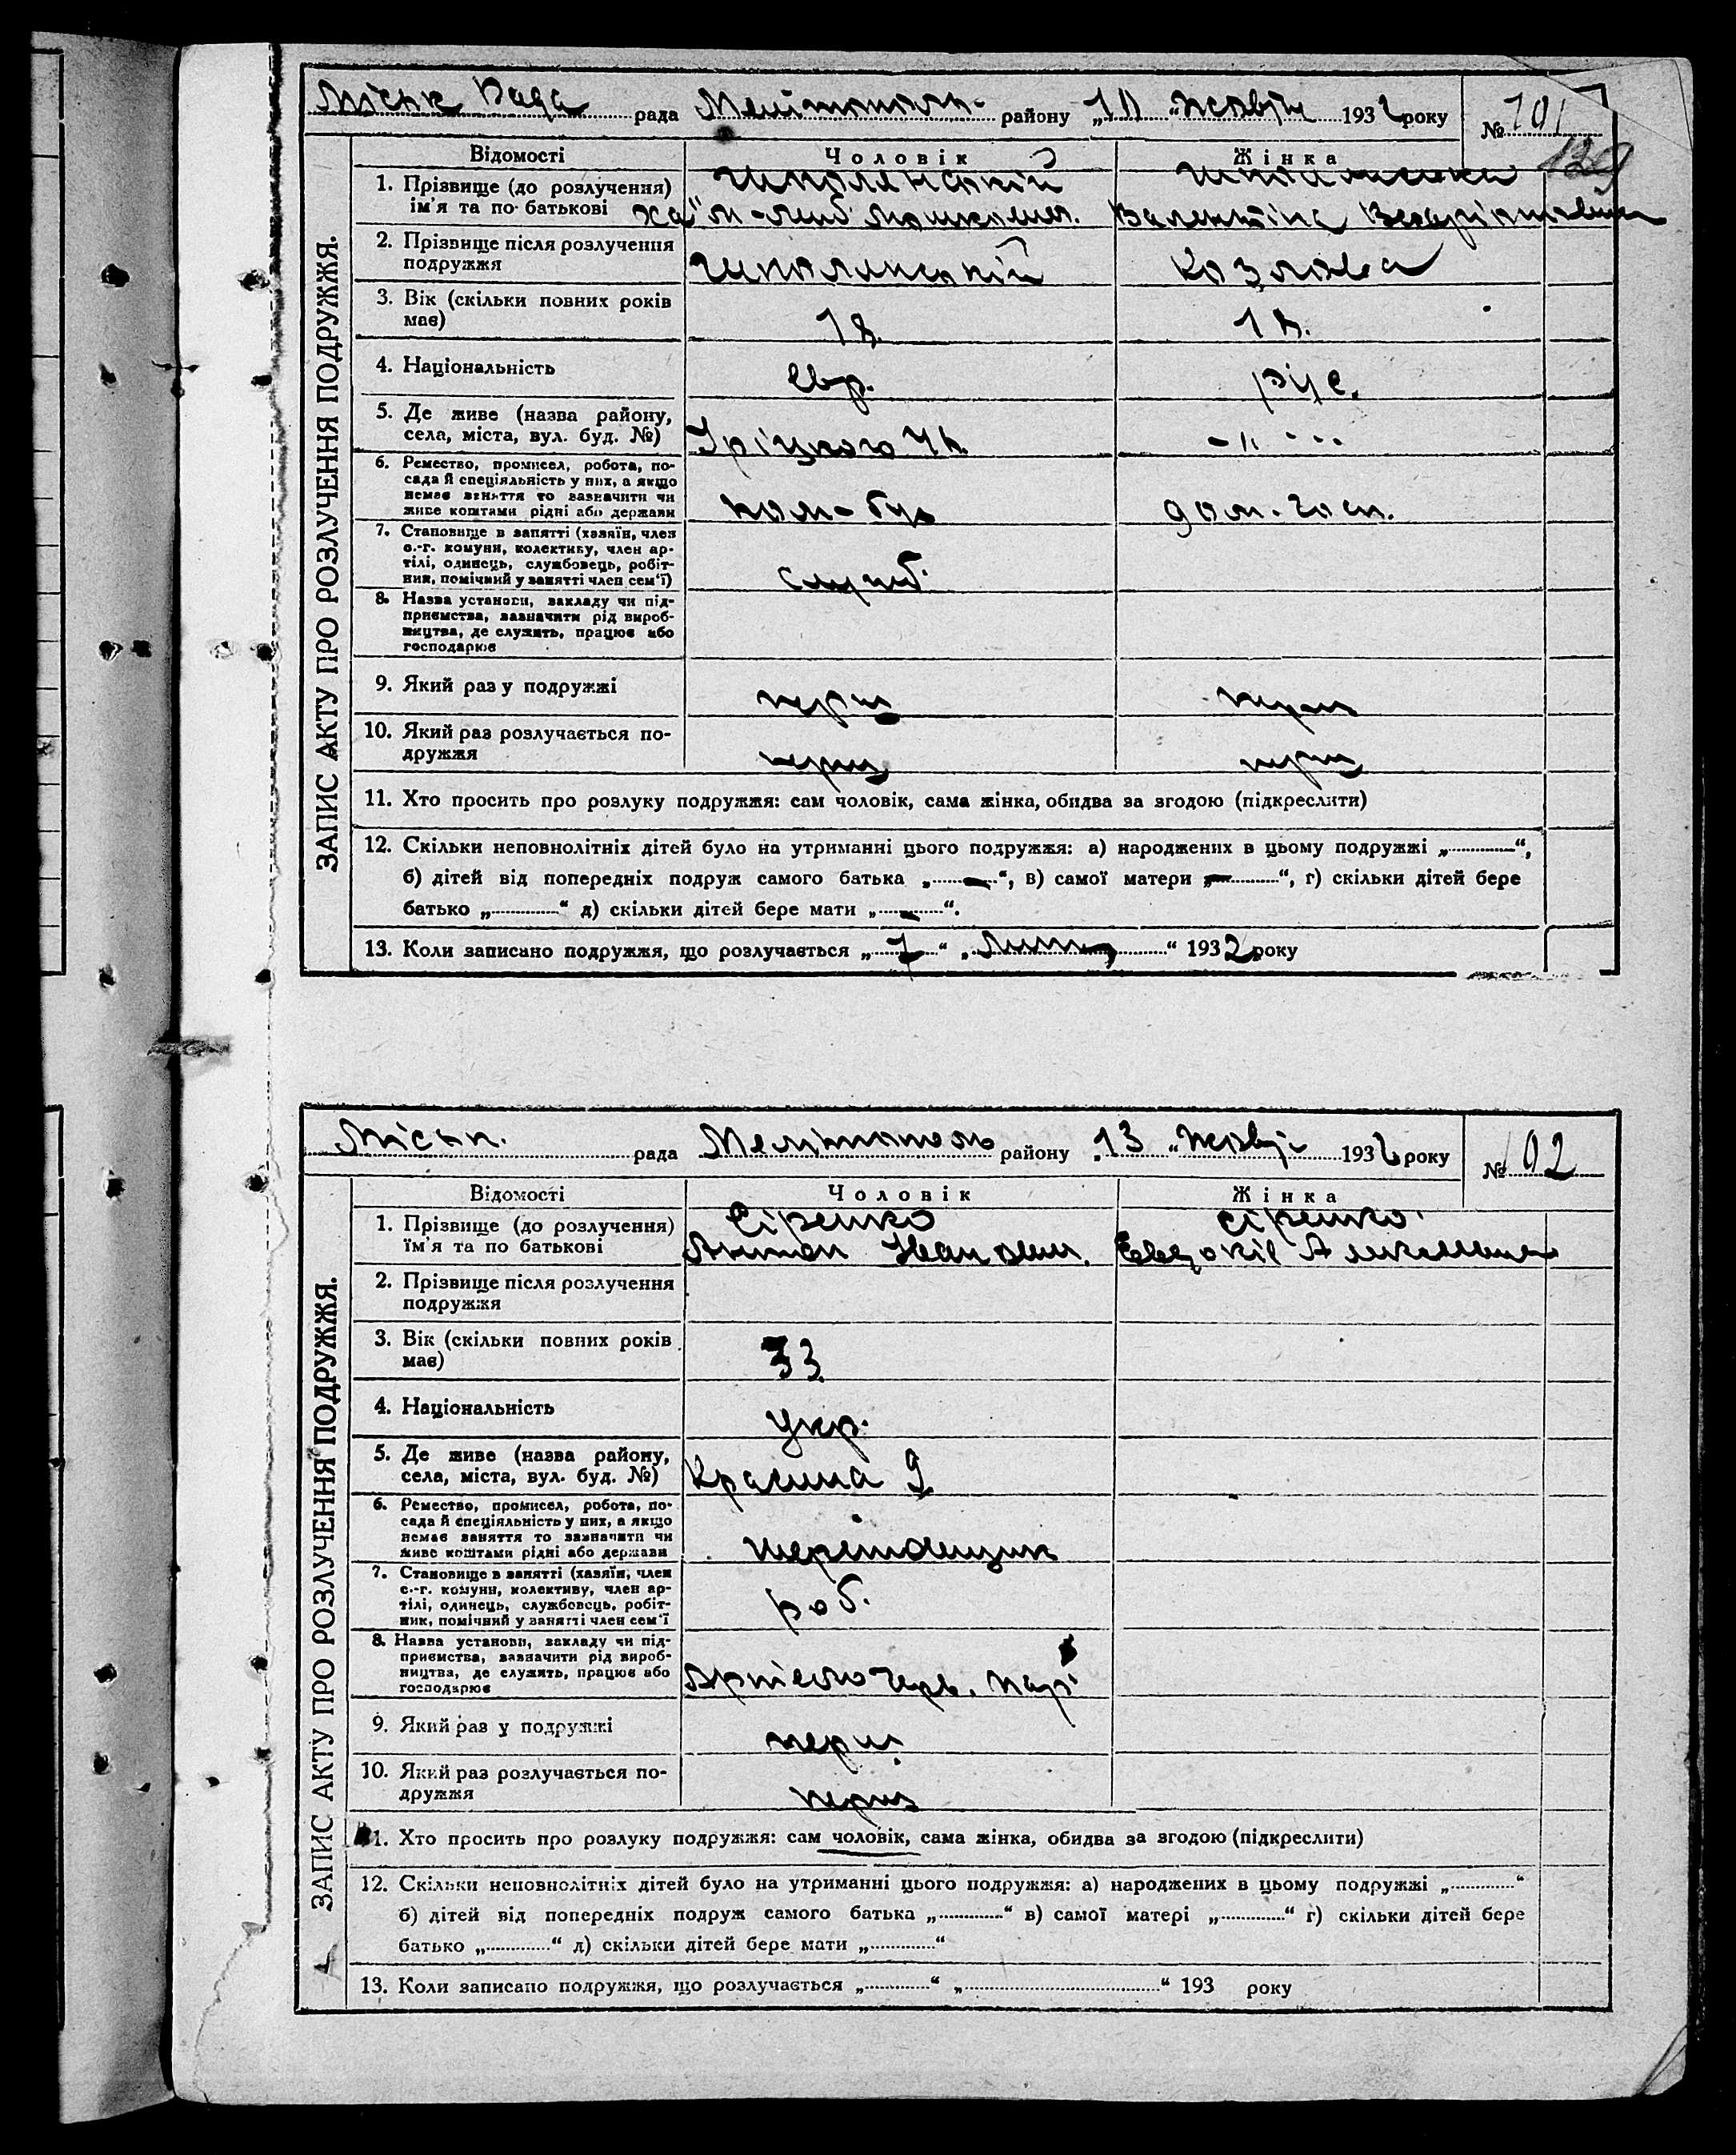 Міськ Рада рада Мелітополь район­у „10 “ Жовтн 1932 року № 101
139
ЗАПИС АКТУ ПРО РОЗЛУЧЕННЯ ПОДРУЖЖЯ.
Відомості Чоловік Жінка
1. Прізвище (до розлучення)
ім'я та по-батькові
2. Прізвище після розлучення Козлова
подружжя
3. Вік (скільки повних років
має) 18. 18.
4. Національність євр. рус.
5. Де живе (назва району,
села, міста, вул. буд. №) Уріцкого - „ - - -
6. Ремество, промисел, робота, по-
сада й спеціяльність у них, а якщо
немає заняття то зазначити чи
живе коштами рідні або держави дом. госп.
7. Становище в занятті (хазяїн, член
с.-г. комуни, колективу, член ар-
тілі, одинець, службовець, робіт-
ник, помічний у занятті член сем'ї) служб.
8. Назва установи, закладу чи під-
приємства, зазначити рід вироб-
ництва, де служить, працює або
господарює
9. Який раз у подружжі перш перш
10. Який раз розлучається по-
дружжя перш перш
11. Хто просить про розлуку подружжя: сам чоловік, сама жінка, обидва за згодою (підкреслити)
12. Скільки неповнолітніх дітей було на утриманні цього подружжя: а) народжених в цьому подружжі „ “,
б) дітей від попередніх подруж самого батька „ — “, в) самої матери „ — “, г) скільки дітей бере
батько „ “ д) скільки дітей бере мати „ — “.
13. Коли записано подружжя, що розлучається „ 7 “ „ “ 1932 року
Міськ. рада Мелітополь району „13 “ Жовт 1932 року № 102
ЗАПИС АКТУ ПРО РОЗЛУЧЕННЯ ПОДРУЖЖЯ.
Відомості Чоловік Жінка
1. Прізвище (до розлучення) Сіренко Сіренко
ім'я та по батькові Антон Іванович. Евдокія
2. Прізвище після розлучення
подружжя
3. Вік (скільки повних років
має) 33
4. Національність укр.
5. Де живе (назва району,
села, міста, вул. буд. №) Красина 9
6. Ремество, промисел, робота, по-
сада й спеціяльність у них, а якщо
немає заняття то зазначити чи
живе коштами рідні або держави
7. Становище в занятті (хазяїн, член
с.-г. комуни, колективу, член ар-
тілі, одинець, службовець, робіт-
ник, помічний у занятті член сем'ї роб.
8. Назва установи, закладу чи під-
приємства, зазначити рід вироб-
ництва, де служить, працює або
господарює Черв.
9. Який раз у подружжі перш.
10. Який раз розлучається по-
дружжя перш
11. Хто просить про розлуку подружжя: сам чоловік, сама жінка, обидва за згодою (підкреслити)
12. Скільки неповнолітніх дітей було на утриманні цього подружжя: а) народжених в цьому подружжі „ “
б) дітей від попередніх подруж самого батька „ “ в) самої матері „ “ г) скільки дітей бере
батько „ “ д) скільки дітей бере мати „ “
13. Коли записано подружжя, що розлучається „ “ „ “ 193 року